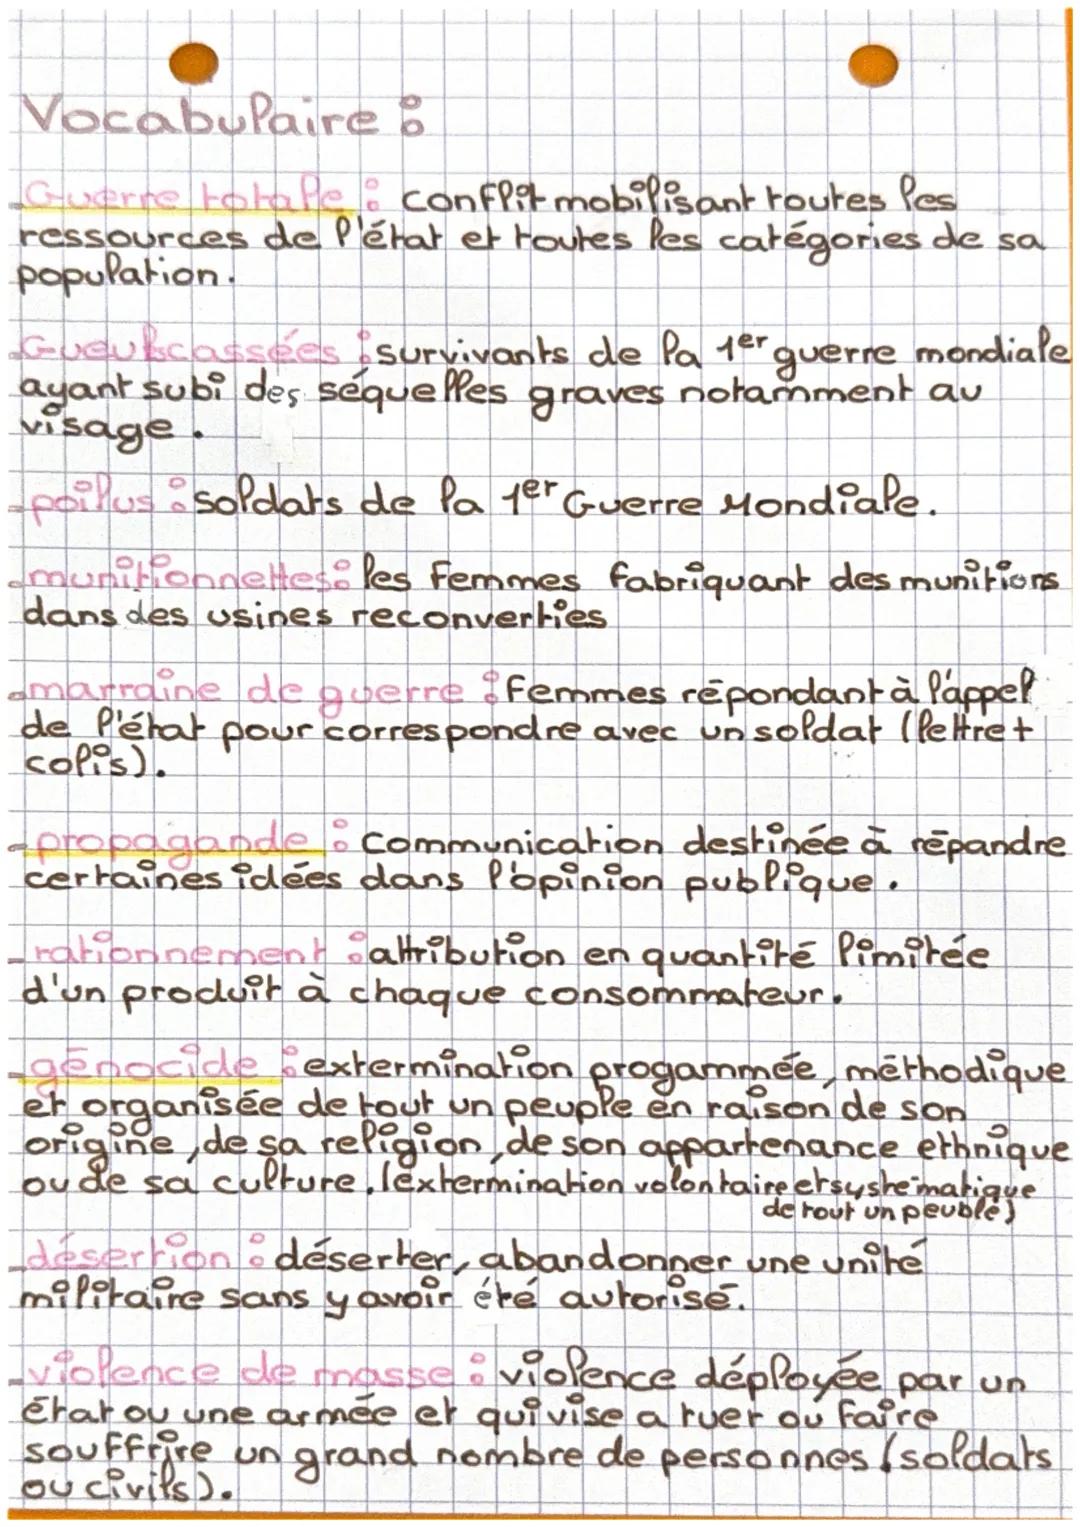 Vocabulaire :
-Guerre totale : conflit mobilisant toutes les
ressources de l'état et toutes les catégories de sa
population.
-Gueulscassées : survivants de la 1er guerre mondiale
ayant subi des séquelles graves notamment au
visage.
-poilus : soldats de la 1er Guerre Mondiale.
-munitionnettes: les femmes fabriquant des munitions
dans des usines reconverties
-marraine de guerre : femmes répondant à l'appel
de l'état pour correspondre avec un soldat (lettre+
colis).
-propagande : communication destinée à répandre
certaines idées dans l'opinion publique.
-rationnement : attribution en quantité limitée
d'un produit à chaque consommateur.
-génocide : extermination progammée, méthodique
et organisée de tout un peuple en raison de son
origine, de sa religion, de son appartenance ethnique
ou de sa culture. (extermination volontaire et systématique
de tout un peuble)
-désertion : déserter, abandonner une unité
militaire sans y avoir été autorisé.
-violence de masse : violence déployée par un
État ou une armée et qui vise a tuer ou faire
souffrire un grand nombre de personnes (soldats
ou civils).